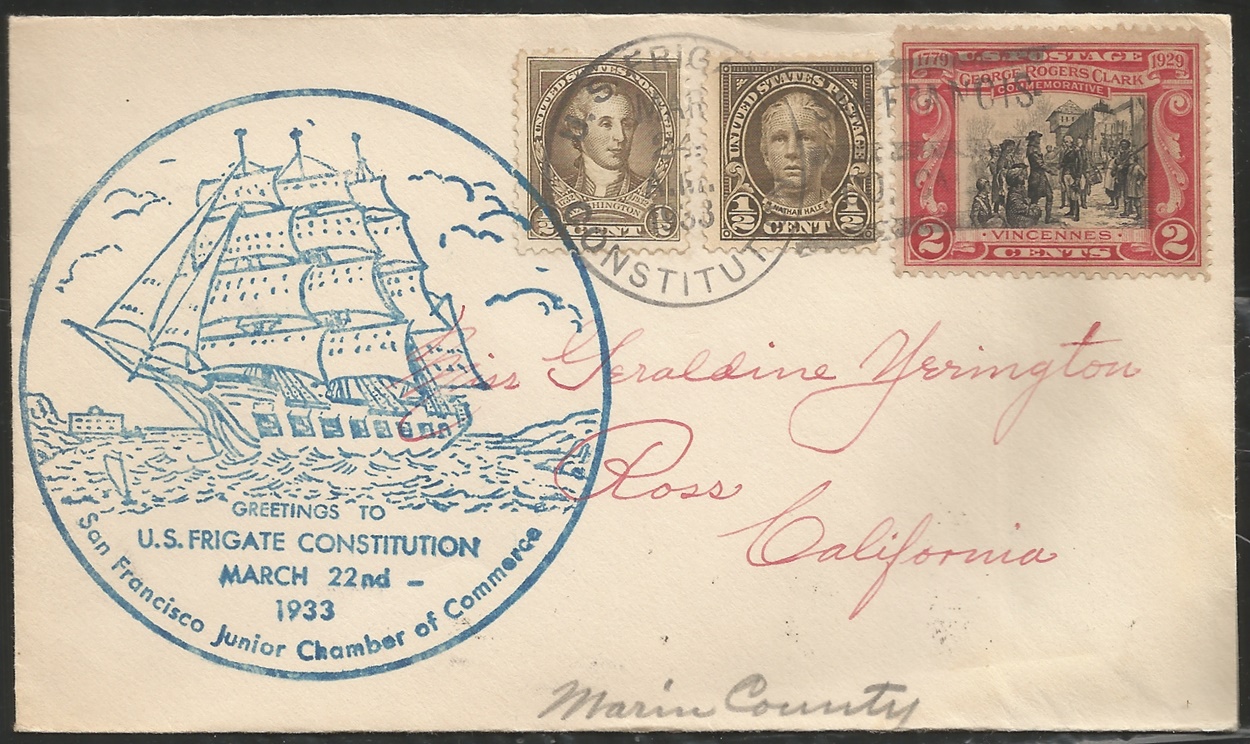 UNITED STATES POSTAGE
1732 WASHINGTON 1932
1/2 CENT 1/2
UNITED STATES POSTAGE
NATHAN HALE
1/2 CENT 1/2
1779 U.S. POSTAGE 1929
GEORGE ROGERS CLARK
COMMEMORATIVE
2 VINCENNES 2
CENTS
U.S.
MAR
24
1933
FRANCIS
Miss Geraldine Yerington
Ross
California
GREETINGS TO
U.S. FRIGATE CONSTITUTION
MARCH 22nd –
1933
San Francisco Junior Chamber of Commerce
Marin County